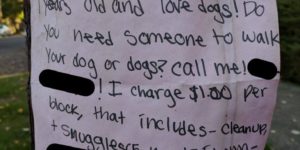 years old and love dogs! Do
you need someone to walk
your dog or dogs? call me!
! I charge $1.00 per
block, that includes- cleanup
+ snuggles